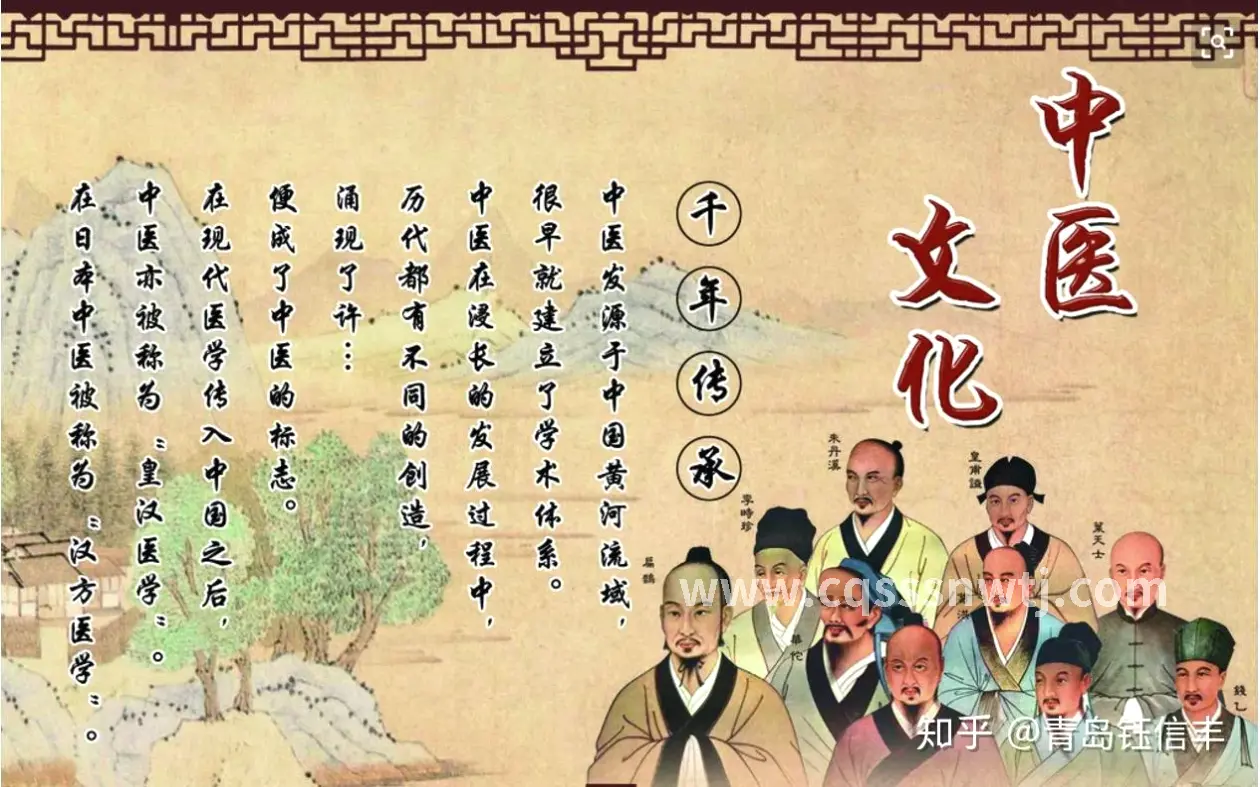 中医
文化
千年传承
中医发源于中国黄河流域，
很早就建立了学术体系。
中医在浸长的发展过程中，
历代都有不同的创造，
涌现了许…
便成了中医的标志。
在现代医学传入中国之后，
中医亦被称为“皇汉医学”。
在日本中医被称为“汉方医学”。
朱丹溪
皇甫謐
李時珍
葉天士
扁鵲
華佗
錢乙
www.cqsssnwtj.com
知乎 @青岛钰信丰